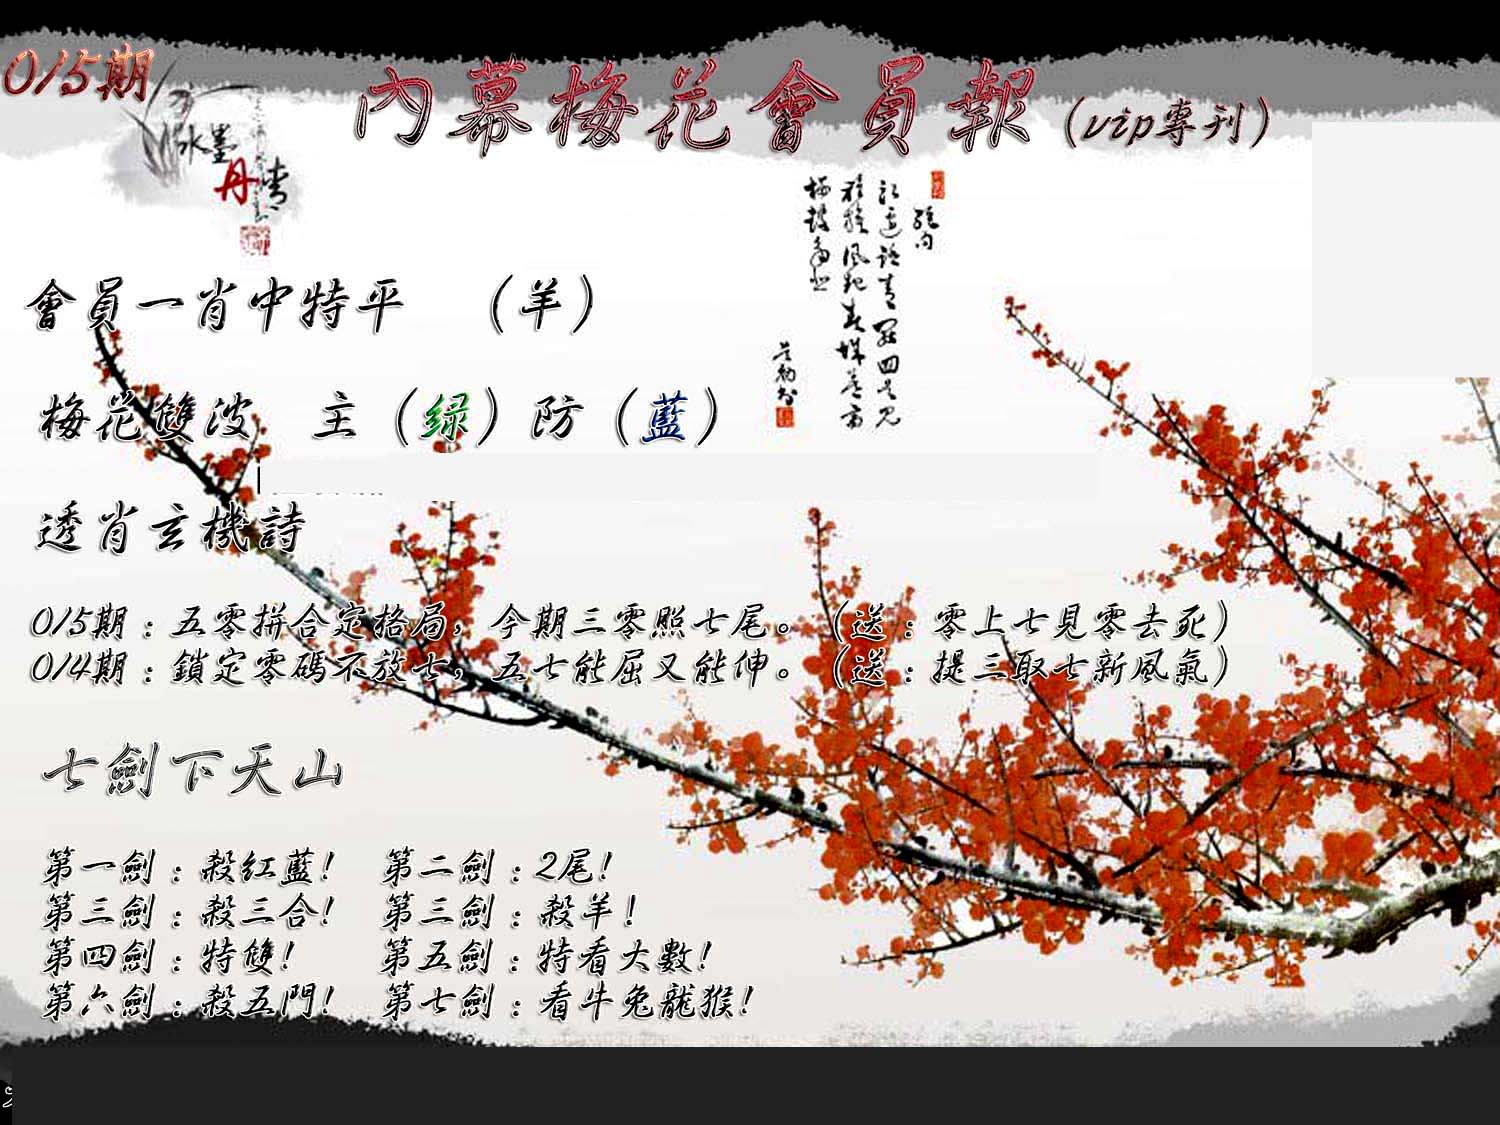 015期
內幕梅花會員報(vip專刊)
水墨
丹青
會員一肖中特平 (羊)
梅花雙波 主(绿)防(藍)
透肖玄機詩
015期:五零拼合定格局,今期三零照七尾。(送:零上七見零去死)
014期:鎖定零碼不放七,五七能屈又能伸。(送:提三取七新風氣)
七劍下天山
第一劍:殺红藍! 第二劍:2尾!
第三劍:殺三合! 第三劍:殺羊!
第四劍:特雙! 第五劍:特看大數!
第六劍:殺五門! 第七劍:看牛兔龍猴!